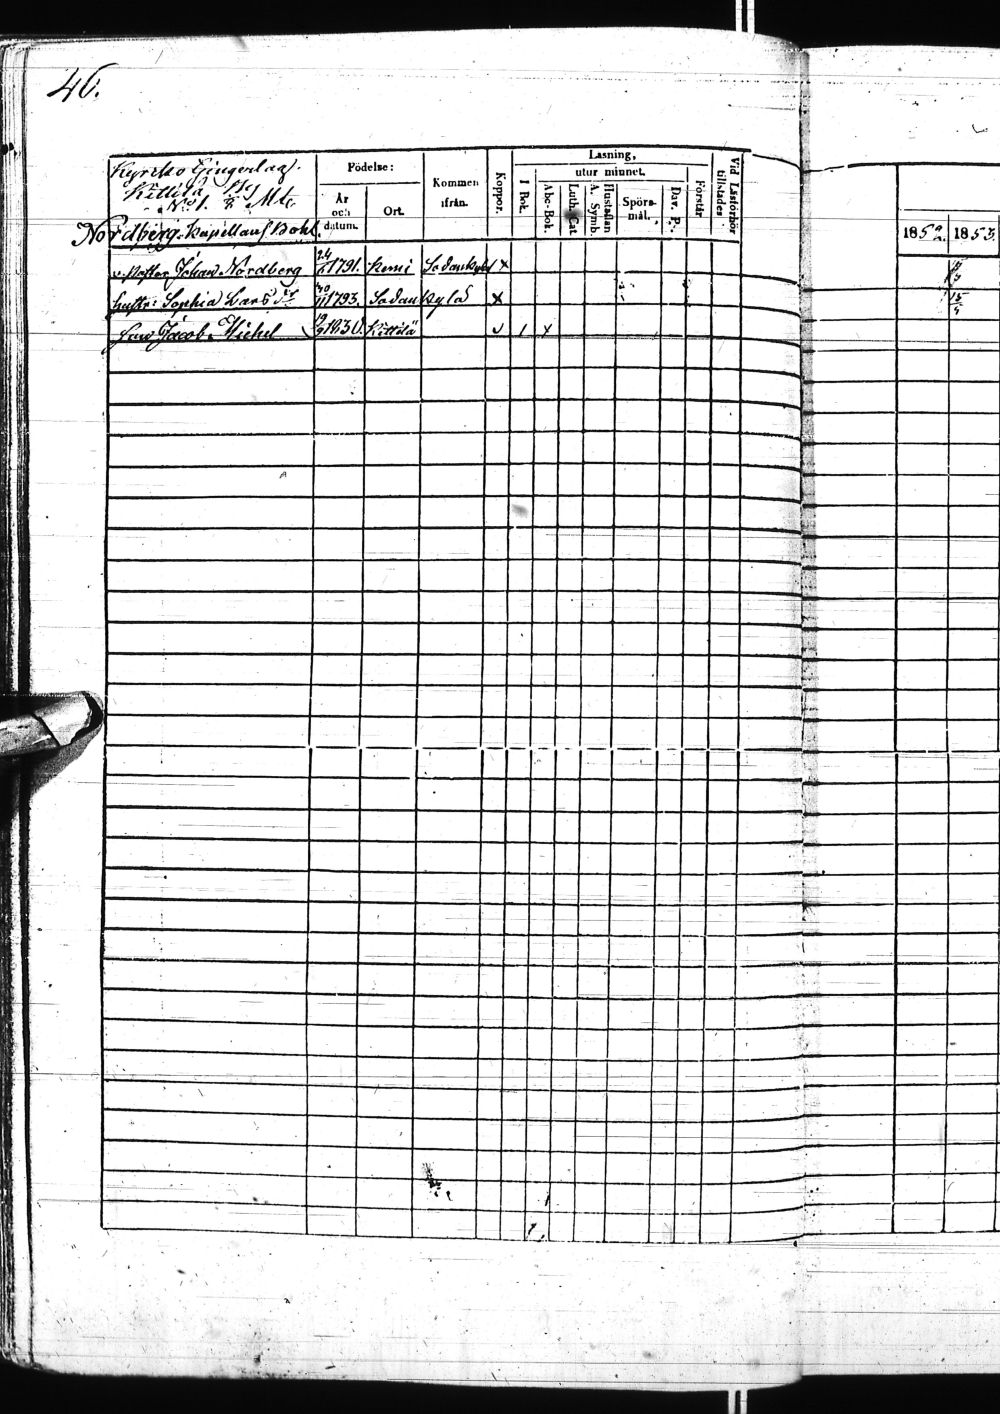 46.
Kyrko Gingerlag.
Kittilä By
No 1. 3/8 Mtl
Födelse:
År och datum.
Ort.
Kommen ifrån.
Koppor.
Läsning,
I Bok.
utur minnet.
Abc-Bok.
Luth. Cat
A. Symb.
Hustaflan
Spörs-mål.
Dav. P.
Förstår
Vid Läsförhör tillstädes
1852. 1853.
Nordberg. Kapellans Bohl.
v. Pastor Johan Nordberg 24 1791. Kemi Sodankylä x
hustr: Sophia Lars dr 30/11 1793. Sodankylä x 15
Son Jacob Michel 19/9 1830. Kittilä v 1 x